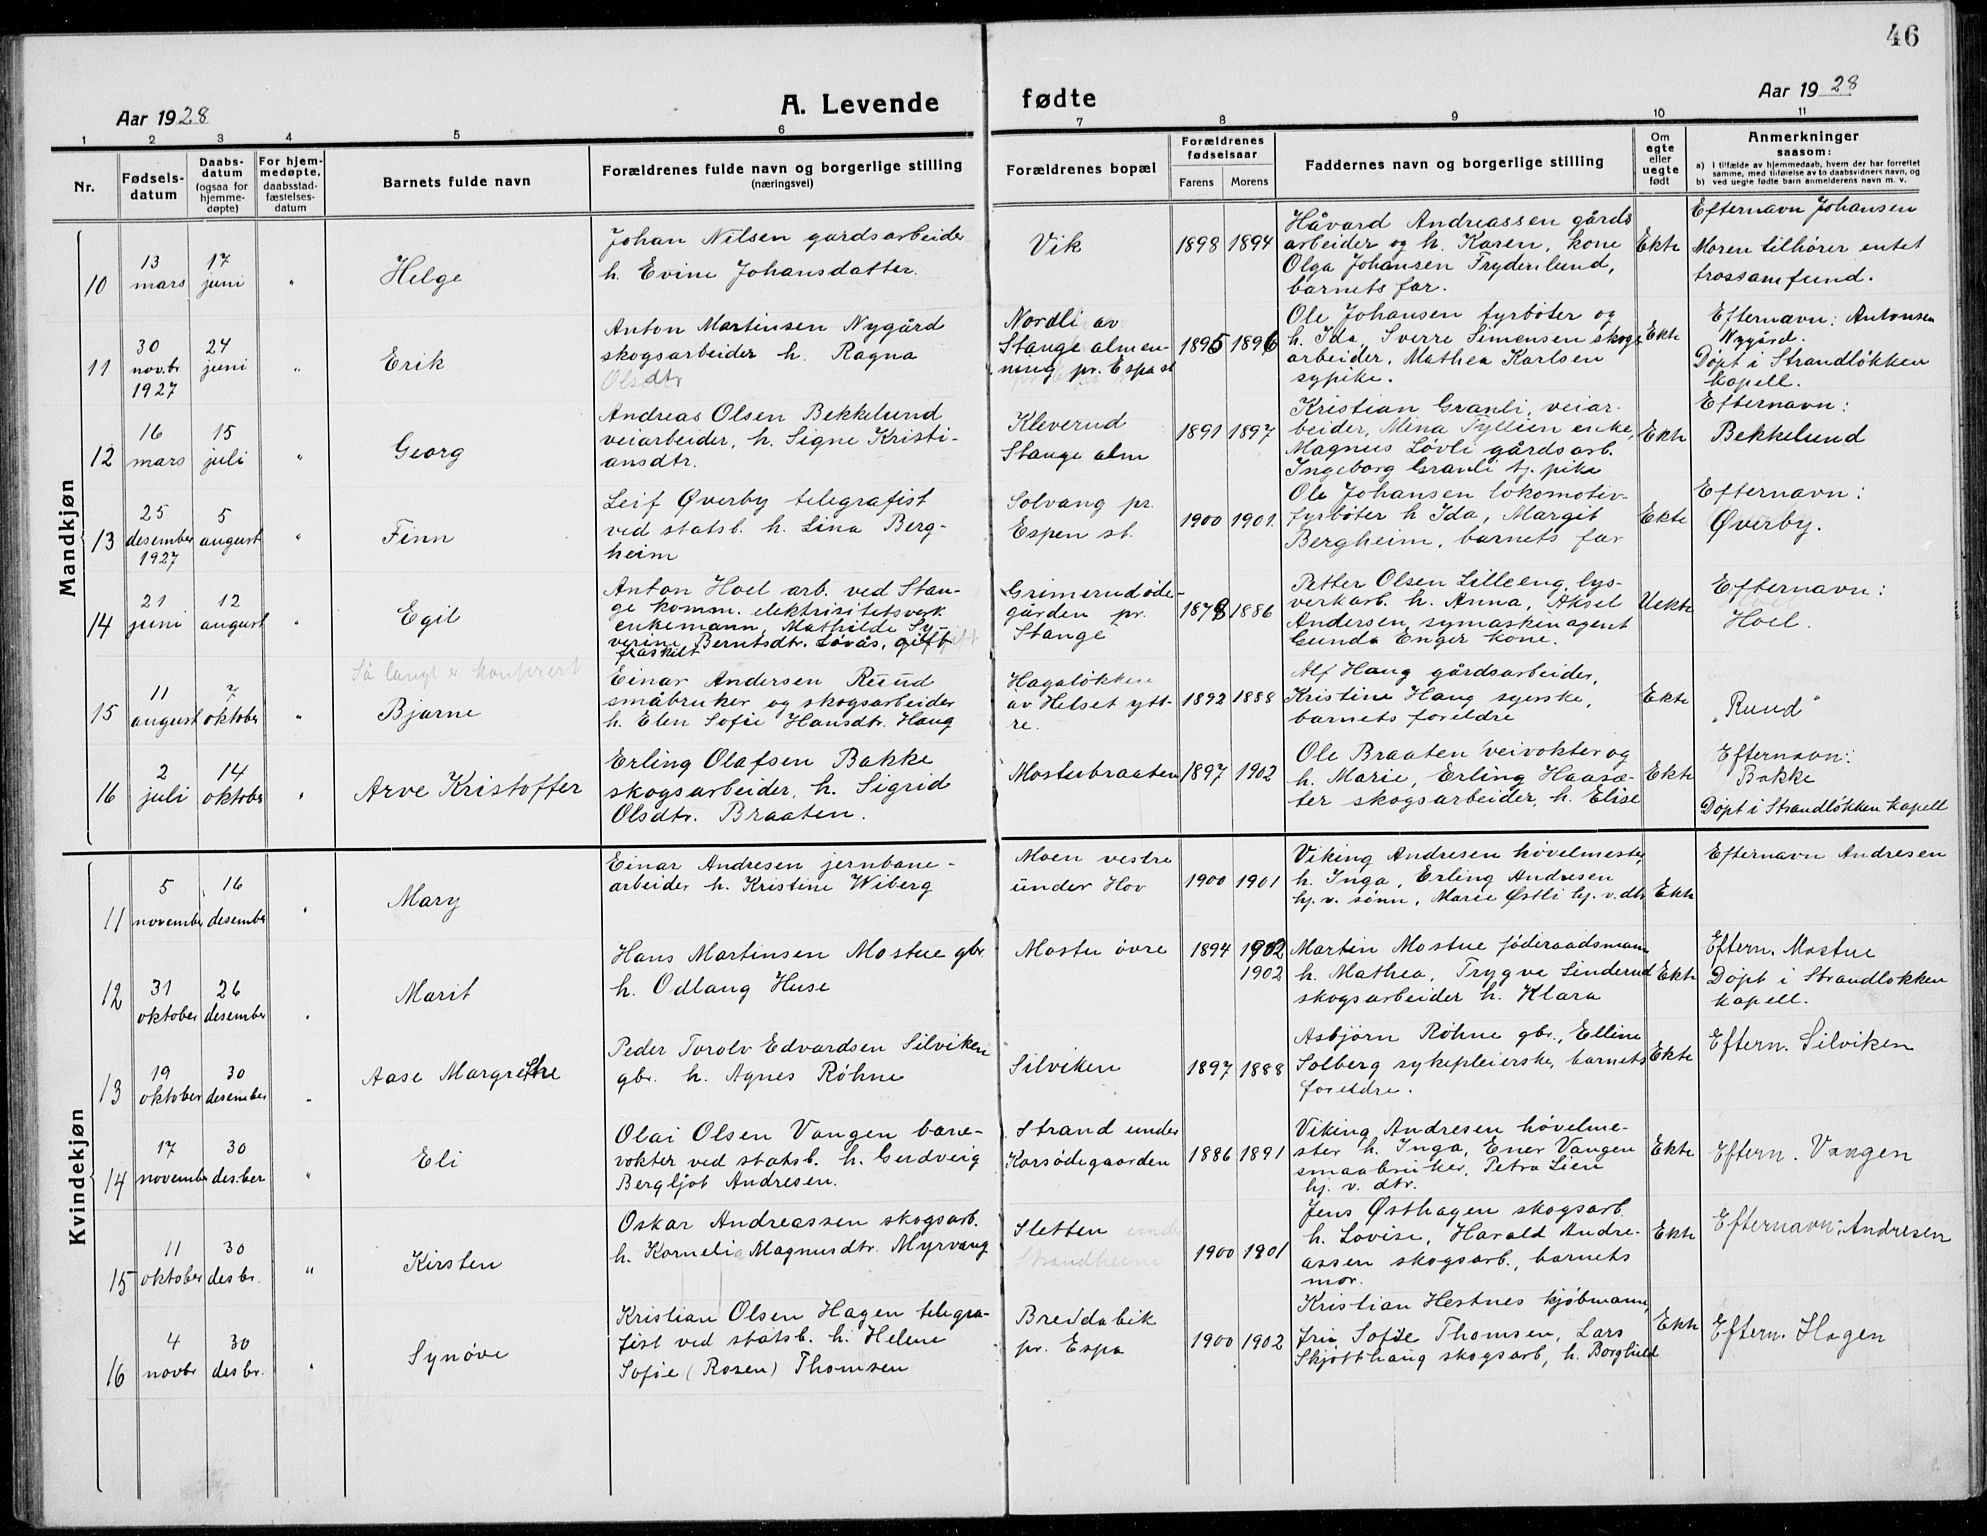 46
Aar 1928
A. Levende
fødte
Aar 1928
1 2 3 4 5 6 7 8 9 10 11
Nr.
Fødsels-
datum
Daabs-
datum
(ogsaa for
hjemme-
døpte)
For hjem-
medøpte,
daabsstad-
fæstelses-
datum
Barnets fulde navn
Forældrenes fulde navn og borgerlige stilling
(næringsvei)
Forældrenes bopæl
Forældrenes
fødselsaar
Farens Morens
Faddernes navn og borgerlige stilling
Om
egte
eller
uegte
født
Anmerkninger
saasom:
a) I tilfælde av hjemmedaab, hvem der har forrettet
samme, med tilføielse av to daabsvidners navn, og
b) ved uegte fødte barn anmelderens navn m. v.
Mandkjøn
10
13
mars
17
juni
"
Helge
Johan Nilsen gardsarbeider
h. Evine Johansdatter.
Vik
1898 1894
Håvard Andreassen gårds
arbeider og h. Karen, kone
Olga Johansen Frydenlund,
barnets far.
Ekte
Efternavn Johansen
Moren tilhører entet
trossamfund.
11
30
novbr
1927
24
juni
"
Erik
Anton Martinsen Nygård
skogsarbeider h. Ragna
Olsdtr
Nordli av
Stange almen-
ning pr. Espa st
1895 1896
Ole Johansen fyrbøter og
h. Ida, Sverre Simensen skogs
arbeider, Mathea Karlsen
sypike.
Ekte
Efternavn: Antonsen
Nygård.
Døpt i Strandløkken
kapell.
12
16
mars
15
juli
"
Georg
Andreas Olsen Bekkelund
veiarbeider, h. Signe Kristi-
ansdtr.
Kleverud
Stange alm
1891 1897
Kristian Granli, veiar-
beider, Mina Tyllien enke,
Magnus Løvli gårdsarb.
Ingeborg Granli tj. pike
Ekte
Efternavn:
Bekkelund
13
25
desember
1927
5
august
"
Finn
Leif Øverby telegrafist
ved statsb. h. Lina Berg-
heim
Solvang pr.
Espen st.
1900 1901.
Ole Johansen lokomotiv-
fyrbøter h Ida, Margit
Bergheim, barnets far
Ekte
Efternavn:
Øverby.
14
21
juni
12
august
"
Egil
Anton Hoel arb. ved Stan-
ge komm. elektrisitetsverk
enkemann, Mathilde Sy-
verine Berntsdtr. Løvås, gift
fraskilt
Grimerudøde-
gården pr.
Stange
1878 1886
Petter Olsen Lilleeng, lys-
verkarb. h. Anna, Aksel
Andersen, symaskinagent
Gunda Enger kone.
Uekte
Efternavn:
Hoel.
Så langt er konferert
15
11
august
7
oktober
"
Bjarne
Einar Andersen Ruud
småbruker og skogsarbeider
h. Elen Sofie Hansdtr. Haug
Hagaløkken
av Helset ytt-
re.
1892 1888
Alf Haug gårdsarbeider,
Kristine Haug syerske,
barnets foreldre
Ekte
„Ruud"
16
2
juli
14
oktober
"
Arve Kristoffer
Erling Olafsen Bakke
skogsarbeider, h. Sigrid
Olsdtr. Braaten.
Mostubraaten
1897 1902
Ole Braaten veivokter og
h. Marie, Erling Haasæ-
ter skogsarbeider, h. Elise
Ekte
Efternavn:
Bakke
Døpt i Strandløkken kapell
Kvindekjøn
11
5
november
16
desember
"
Mary
Einar Andresen jernbane-
arbeider h. Kristine Wiberg
Moen vestre
under Hov
1900 1901
Viking Andresen høvelmester
h. Inga, Erling Andresen
hj. v. sønn, Marie Østli hj. v. dtr
Ekte
Efternavn Andresen
12
31
oktober
26
desember
"
Marit
Hans Martinsen Mostue gbr.
h. Odlaug Huse
Mostu øvre
1894 1902
1902
Martin Mostue føderaadsmann
h. Mathea, Trygve Linderud
skogsarbeider h. Klara
Ekte
Eftern. Mostue
Døpt i Strandløkken
kapell.
13
19
oktober
30
desember
"
Aase Margrethe
Peder Torolv Edvardsen Silviken
gbr. h. Agnes Røhne
Silviken
1897 1888
Asbjørn Røhne gbr., Elline
Solberg sykepleierske, barnets
foreldre.
Ekte
Eftern. Silviken
14
17
november
30
desber
"
Eli
Olai Olsen Vangen bane-
vokter ved statsb. h. Gudveig
Bergljot Andresen.
Strand under
Korsødegaarden
1886 1891
Viking Andresen høvelme-
ster h. Inga, Ener Vangen
smaabruker, Petra Lien
hj. v. dtr.
Ekte
Eftern. Vangen
15
11
oktober
30
desbr.
"
Kirsten
Oskar Andreassen skogsarb.
h. Kornelia Magnusdtr. Myrvang
Sletten under
Strandheim
1900 1901
Jens Østhagen skogsarb.
h. Lovise, Harald Andre-
assen skogsarb., barnets
mor.
Ekte
Efternavn: Andresen
16
4
novbr
30
desbr.
"
Synøve
Kristian Olsen Hagen telegra-
fist ved statsb. h. Helene
Sofie (Rosen) Thomsen
Breddabik
pr. Espa
1900 1902
Kristian Hestnes kjøbmann,
fru Sofie Thomsen, Lars
Skjøtthaug skogsarb, h. Borghild
Ekte
Eftern. Hagen